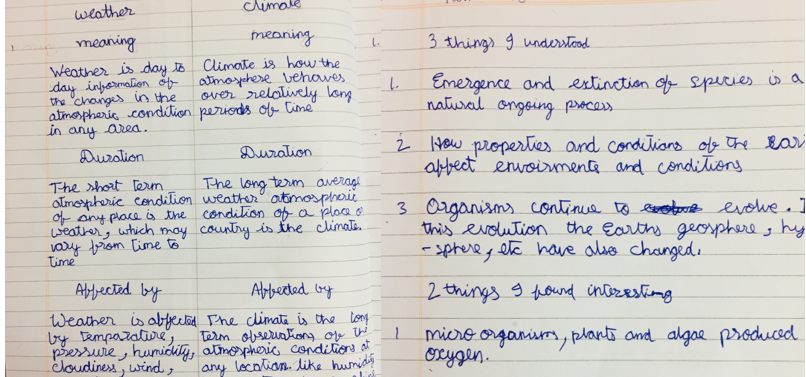 weather
meaning
Weather is day to
day information of
the changes in the
atmospheric condition
in any area.
Duration
The short term
atmospheric condition
of any place is the
weather, which may
vary from time to
time
Affected by
Weather is affected
by temparature,
pressure, humidity,
cloudiness, wind,
climate
meaning
Climate is how the
atmosphere behaves
over relatively long
periods of time
Duration
The long term average
weather atmospheric
condition of a place o
country is the climate.
Affected by
The climate is the long
term observations of th
atmospheric conditions at
any location like humidity
1. 3 things I understood
1. Emergence and extinction of species is a
natural ongoing process
2 How properties and conditions of the ear
affect envoirments and conditions
3 Organisms continue to evolve evolve. I
this evolution the Earths geosphere, hy
-sphere, etc have also changed.
2 things I found interesting
1 micro organism, plants and algae produced
oxygen.